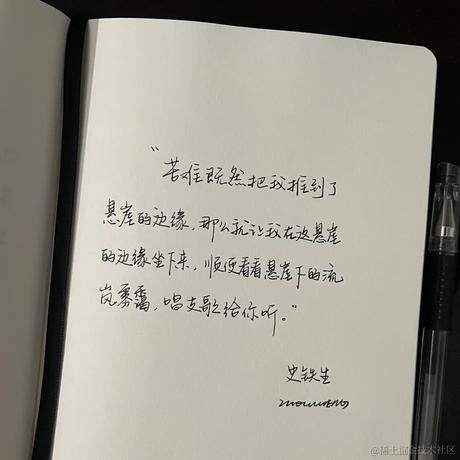 “苦难既然把我推到了
悬崖的边缘，那么就让我在这悬崖
的边缘坐下来，顺便看看悬崖下的流
岚雾霭，唱支歌给你听。”
史铁生
@稀土掘金技术社区